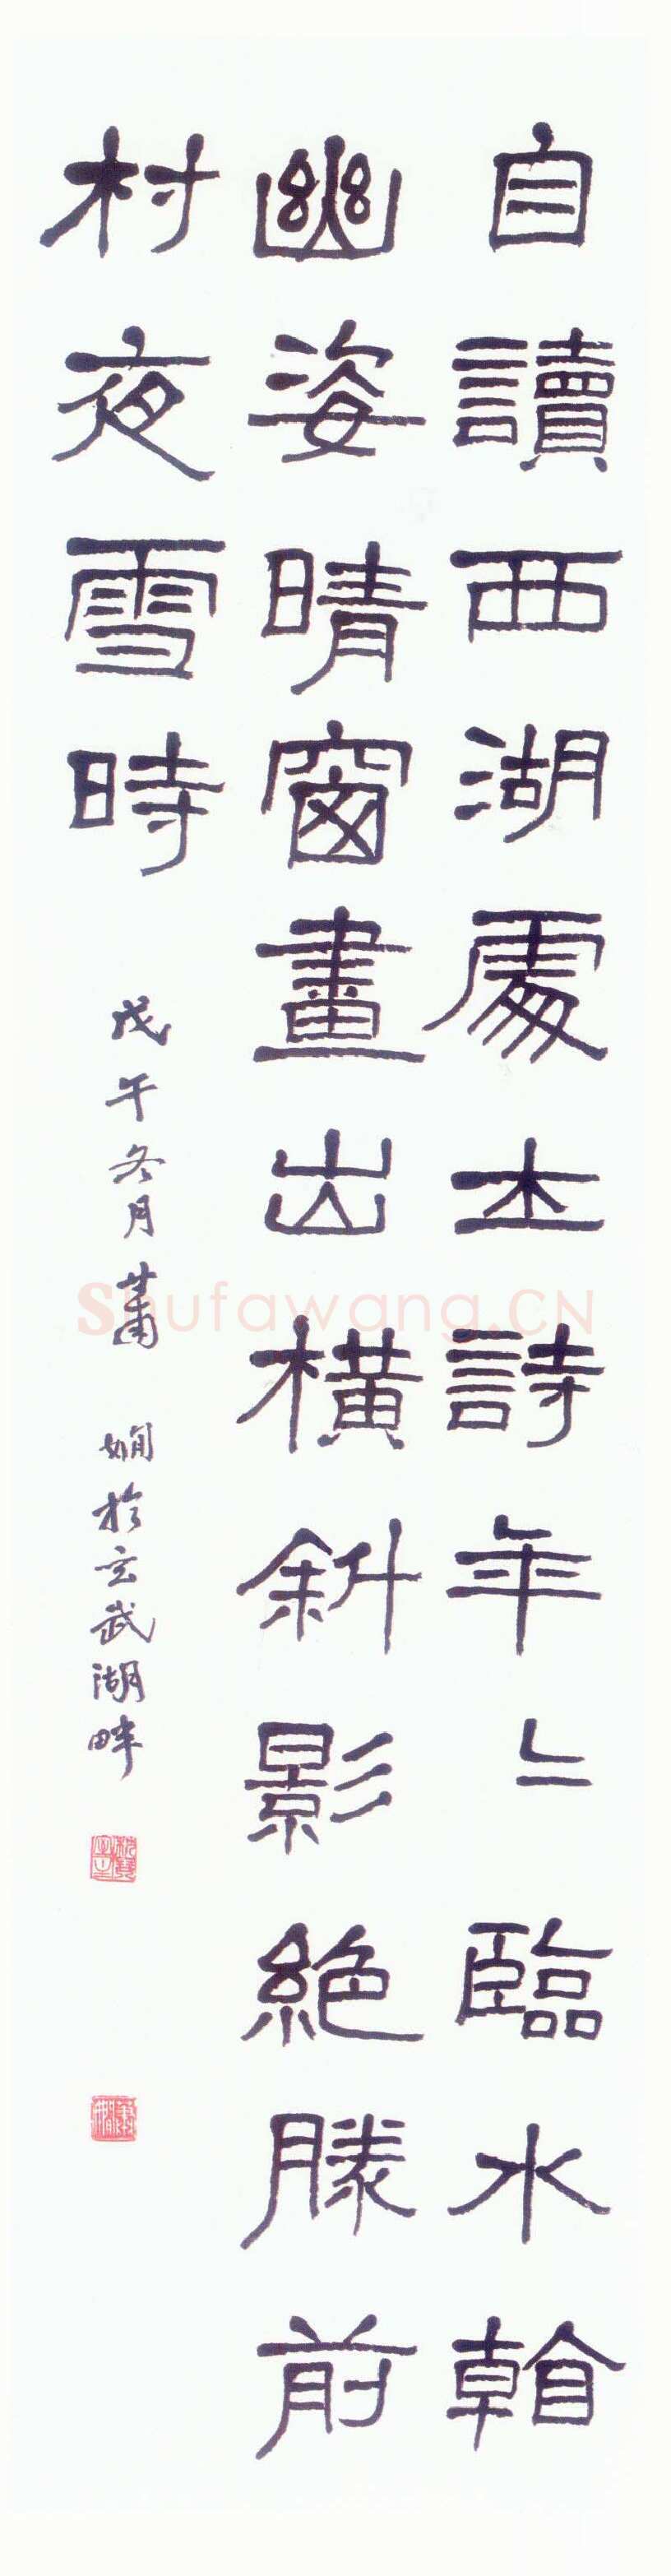 自讀西湖處士詩年〻臨水看
幽姿晴窗畫出橫斜影絕勝前
村夜雪時
戊午冬月蕭嫻於玄武湖畔
Shufawang.CN